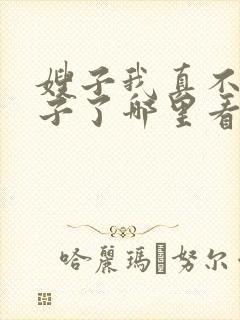 嫂子我真不
子了哪里看
哈麗瑪 努尔